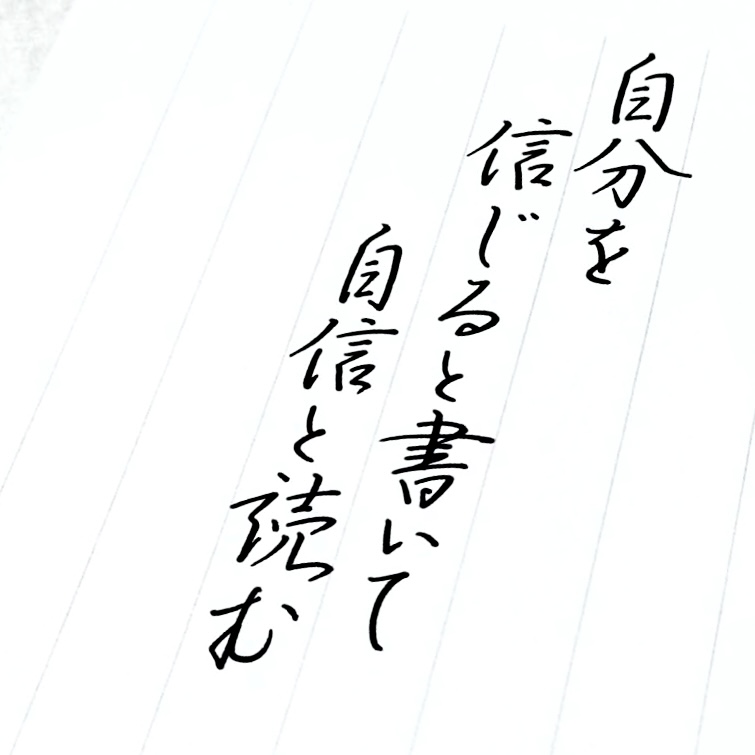 自分を
信じると書いて
自信と読む